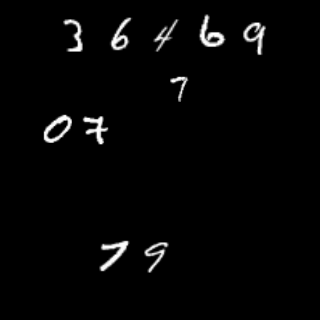 3 6 4 6 9
7
0 7
7 9